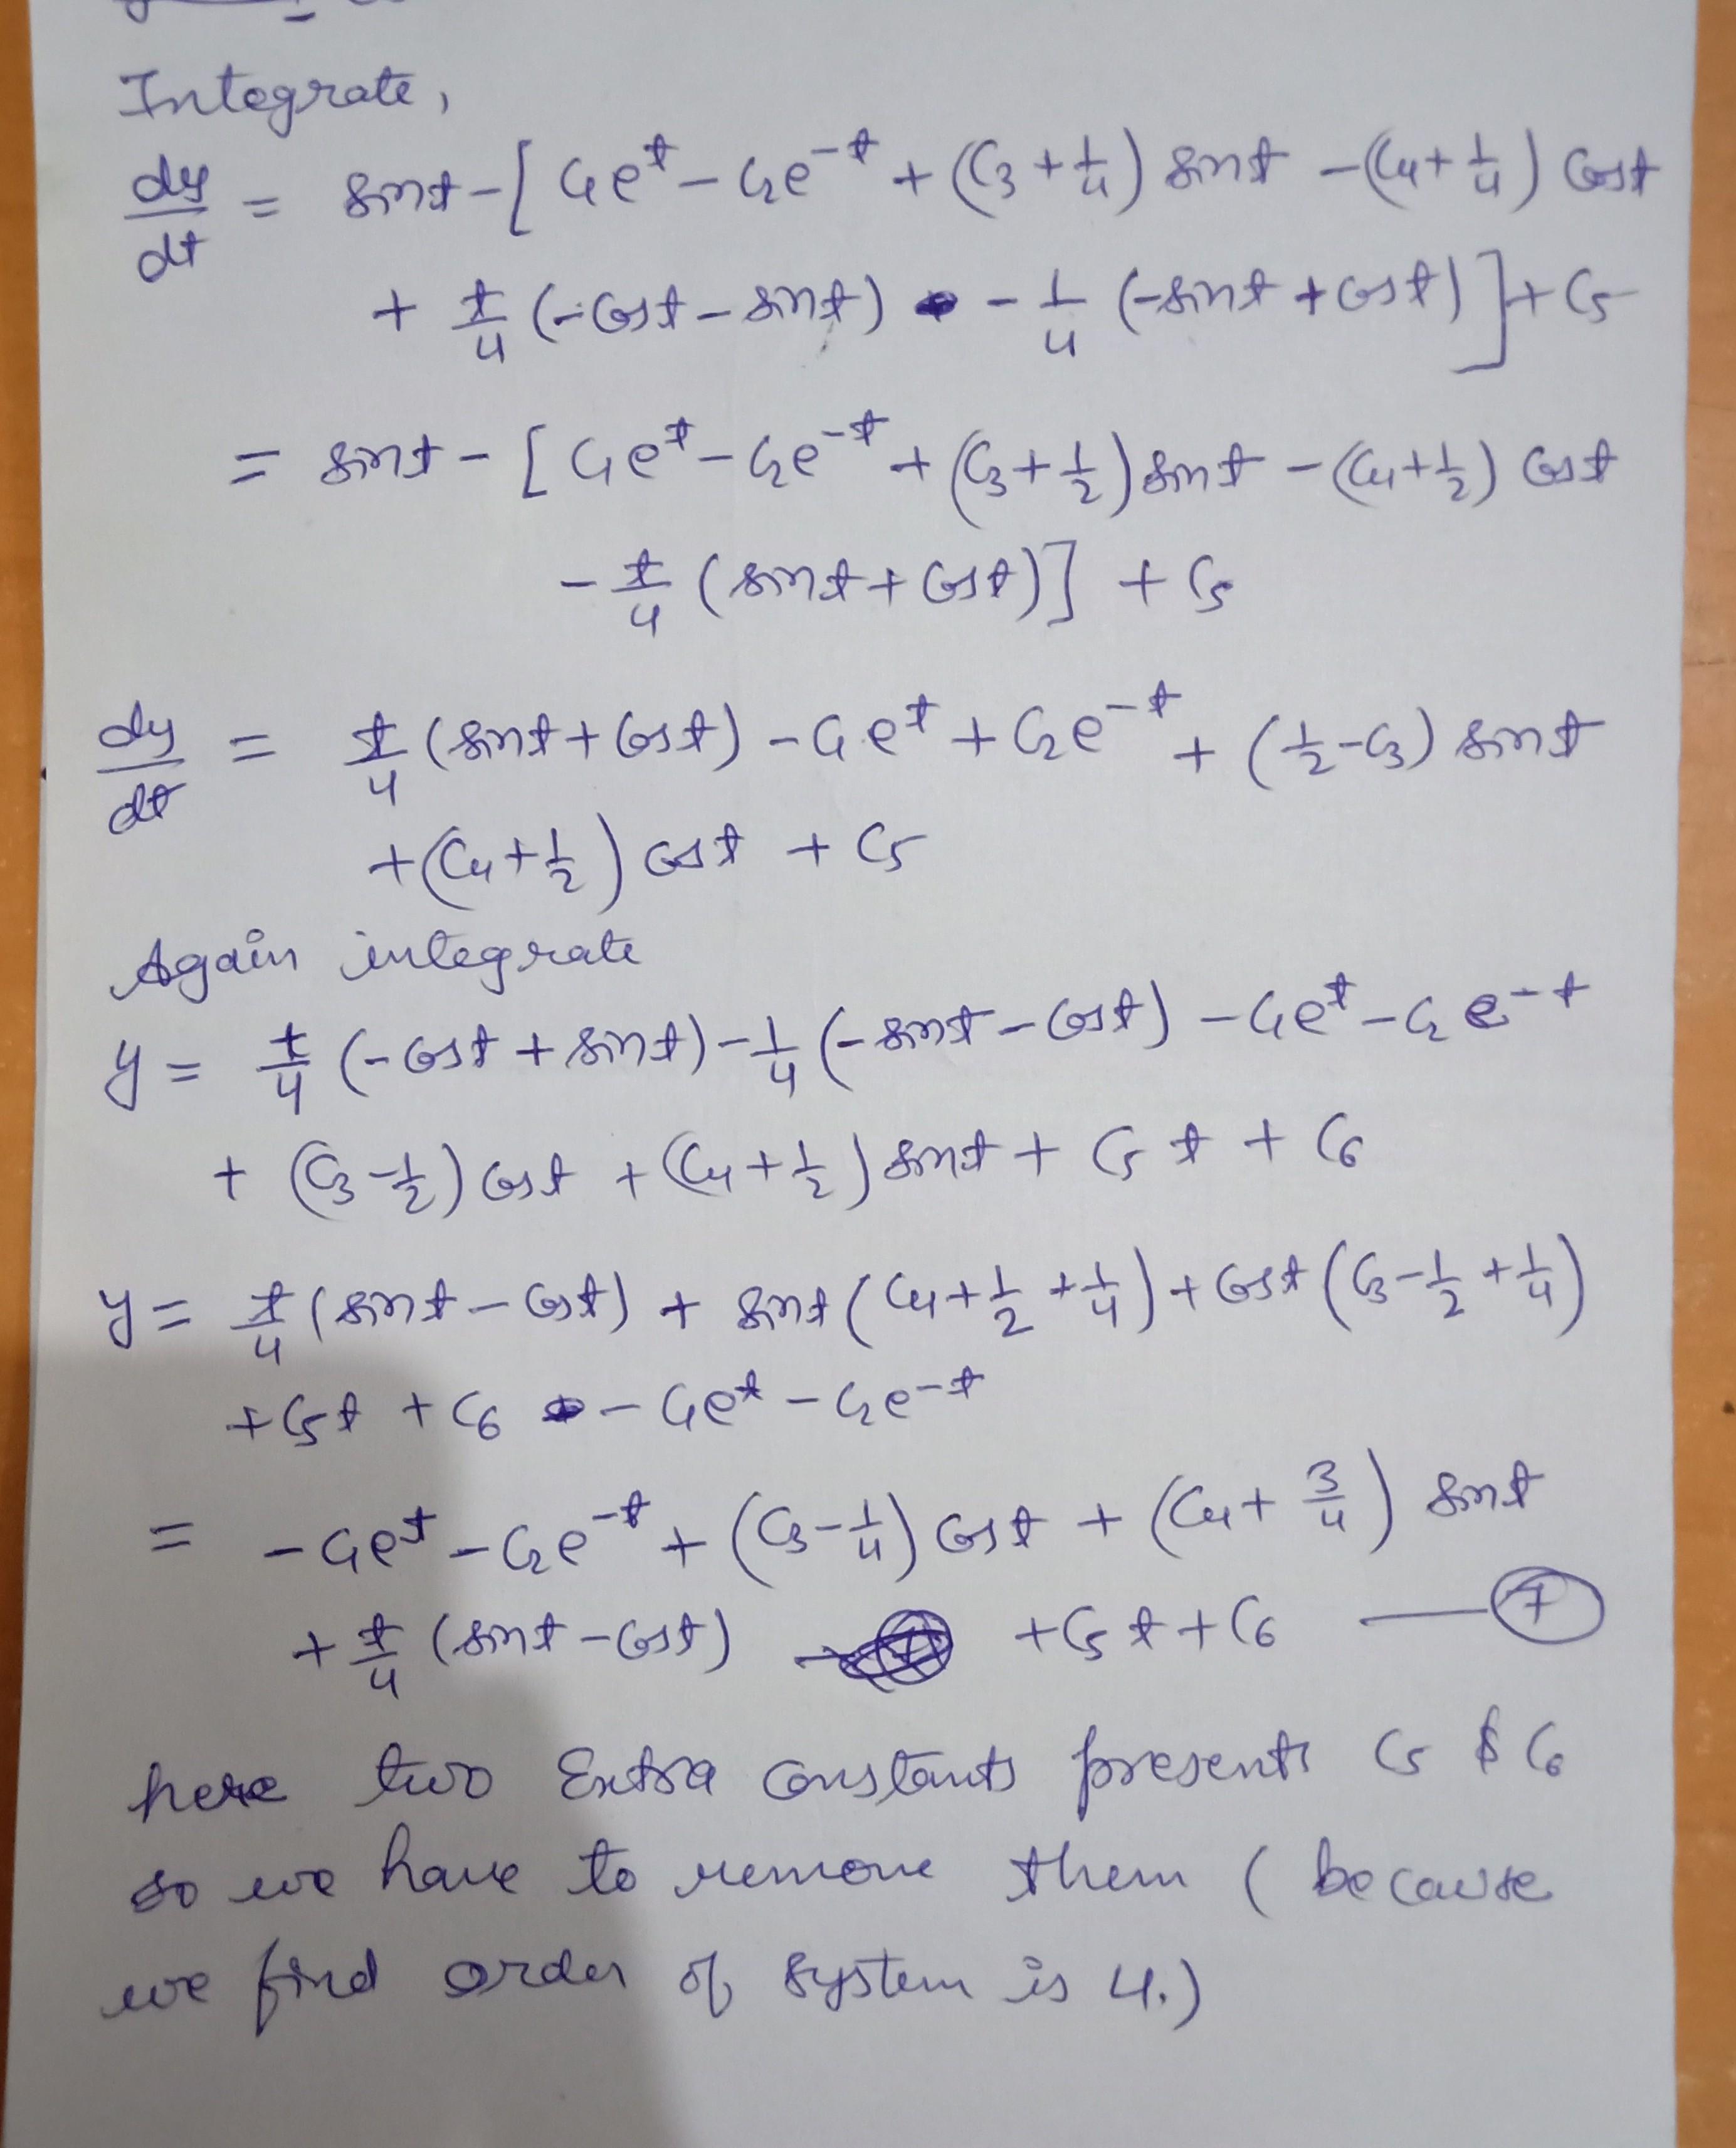 Integrate,
dy/dt = sint - [C₁e^t - C₂e^-t + (C₃ + 1/4) sint - (C₄ + 1/4) Cost
+ t/4 (-Cost - sint) - 1/4 (-sint + Cost)] + C₅
= sint - [C₁e^t - C₂e^-t + (C₃ + 1/2) sint - (C₄ + 1/2) Cost
- t/4 (sint + Cost)] + C₅
dy/dt = t/4 (sint + Cost) - C₁e^t + C₂e^-t + (1/2 - C₃) sint
+ (C₄ + 1/2) Cost + C₅
Again integrate
y = t/4 (-Cost + sint) - 1/4 (-sint - Cost) - C₁e^t - C₂e^-t
+ (C₃ - 1/2) Cost + (C₄ + 1/2) sint + C₅t + C₆
y = t/4 (sint - Cost) + sint (C₄ + 1/2 + 1/4) + Cost (C₃ - 1/2 + 1/4)
+ C₅t + C₆ - C₁e^t - C₂e^-t
= -C₁e^t - C₂e^-t + (C₃ - 1/4) Cost + (C₄ + 3/4) sint
+ t/4 (sint - Cost) + C₅t + C₆ — 7
here two Extra constants presents C₅ & C₆
so we have to remove them ( because
we find order of system is 4.)